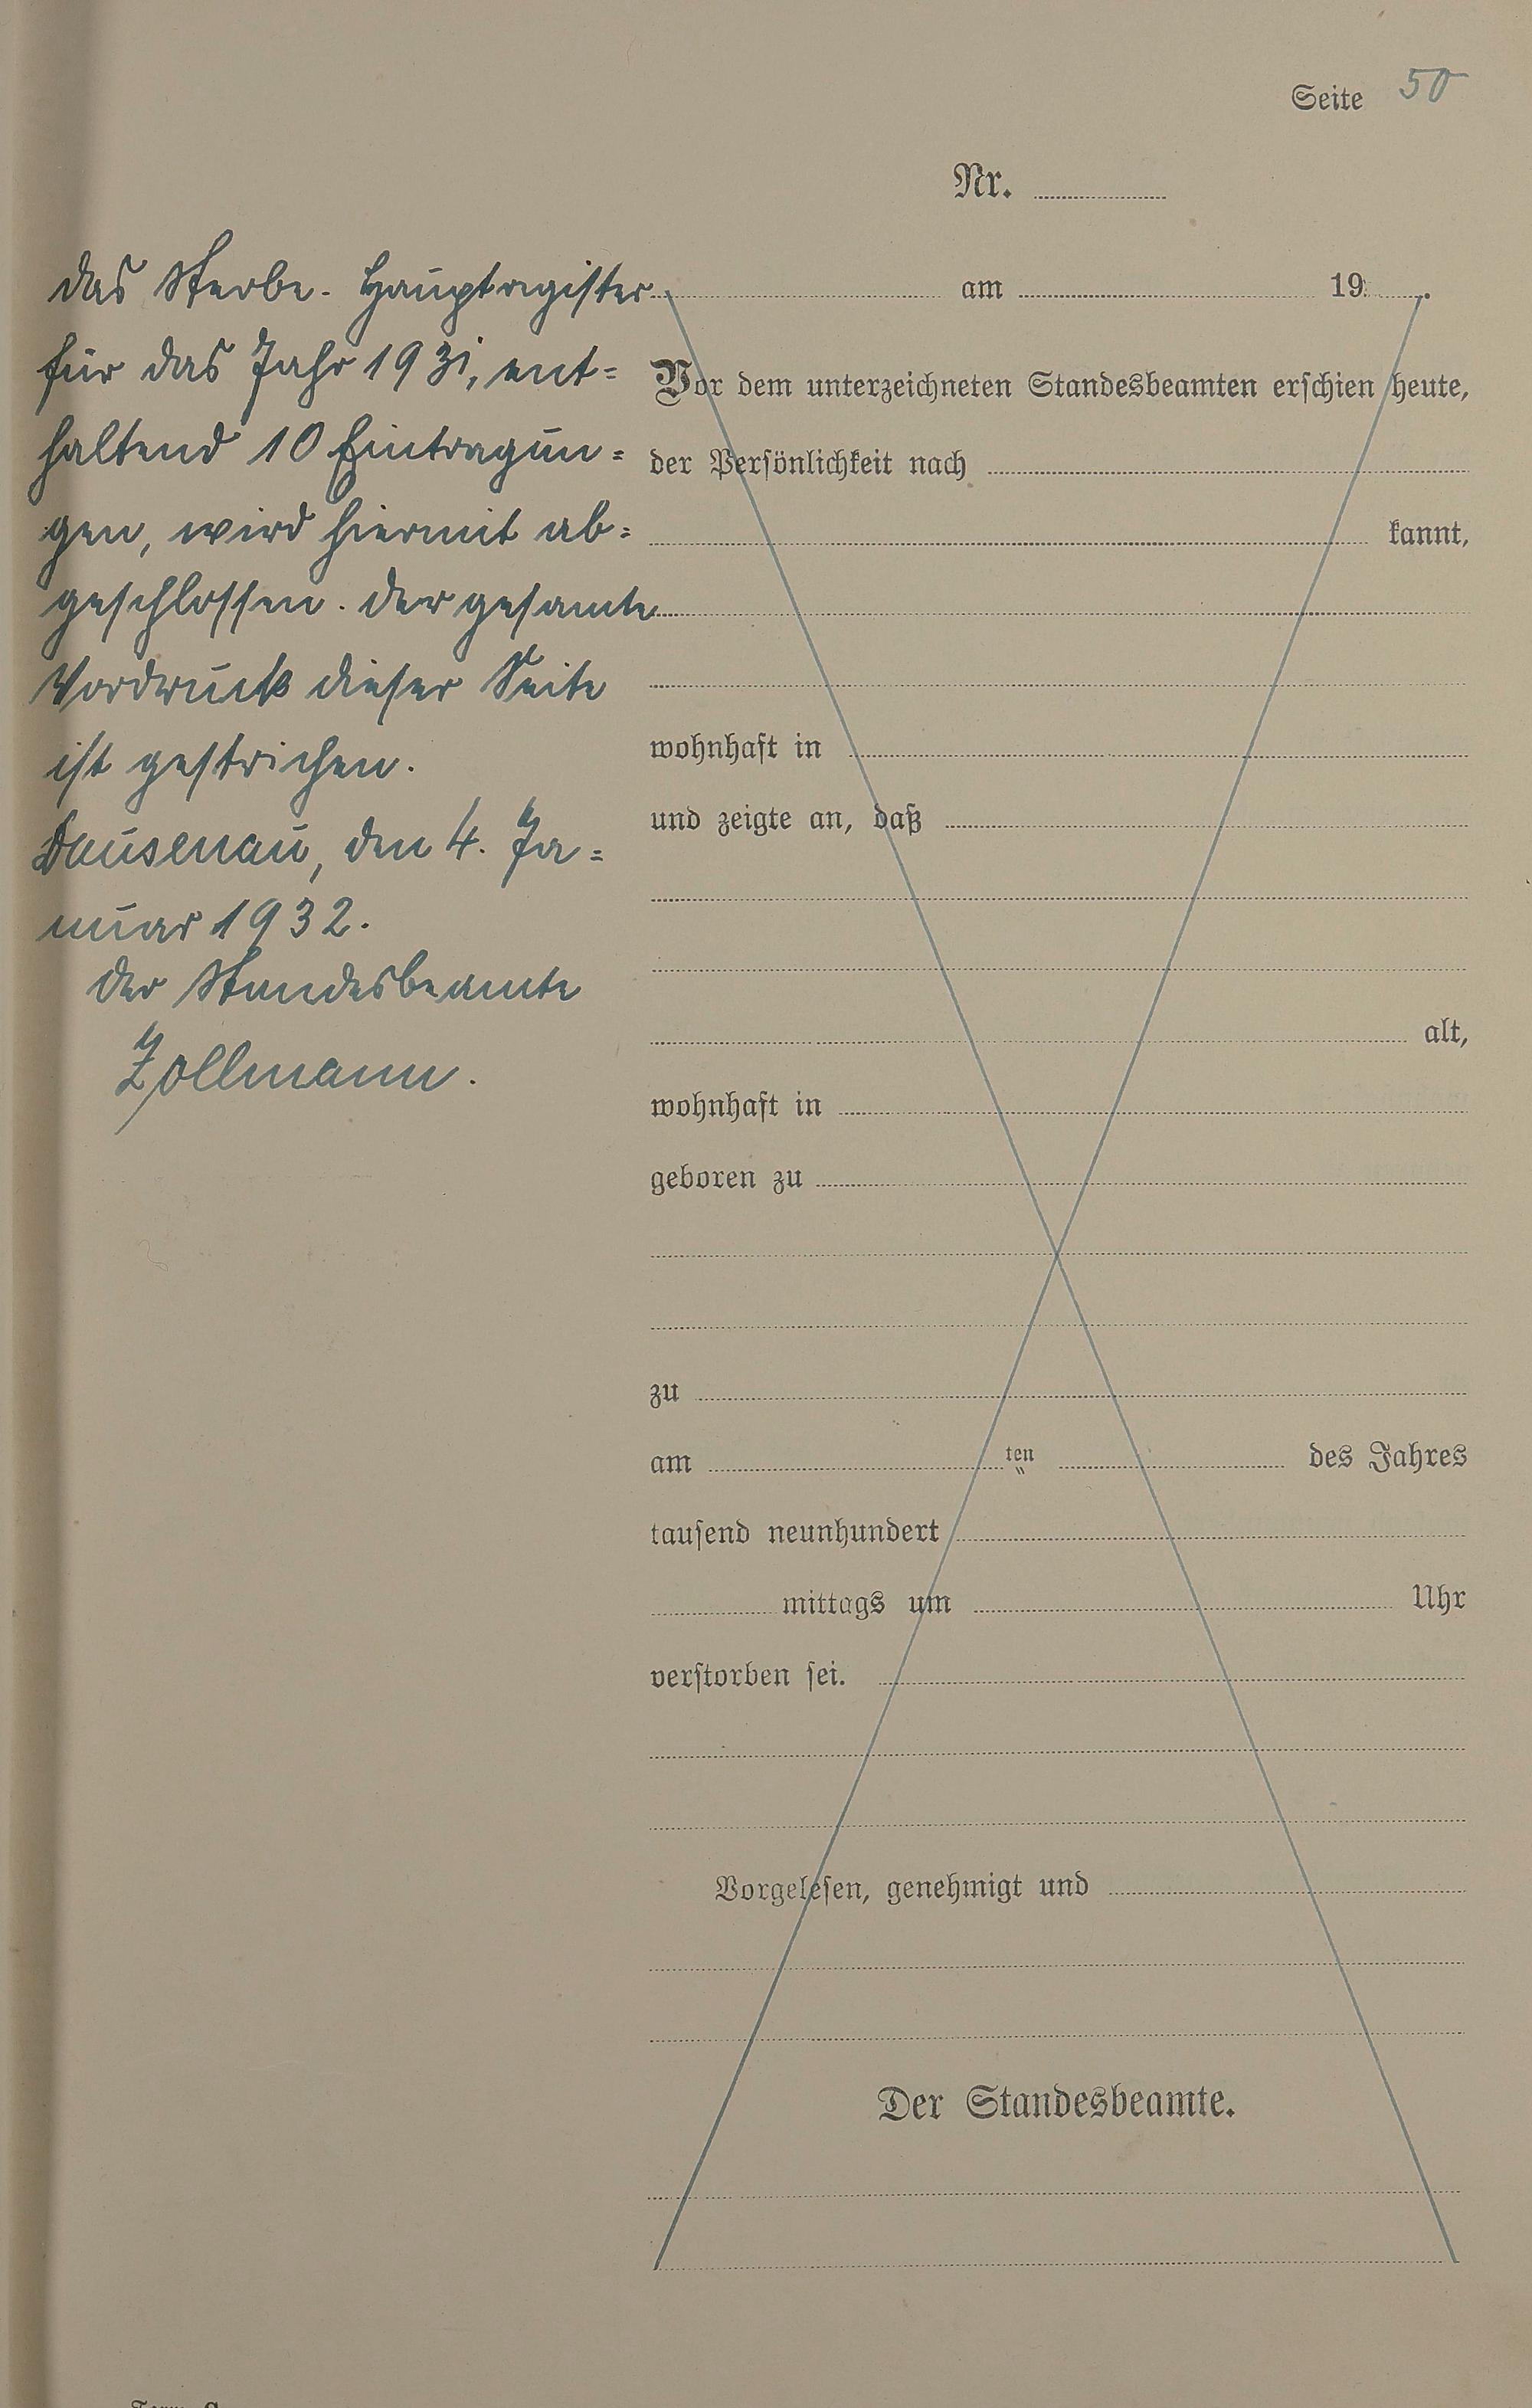 Seite 50
Nr.
das Sterbe-Hauptregister
für das Jahr 1931, ent=
haltend 10 Eintragun=
gen, wird hiermit ab=
geschlossen. der gesamte
Vordruck dieser Seite
ist gestrichen.
Dausenau, den 4. Ja=
nuar 1932.
der Standesbeamte
Zollmann.
am 19 .
Vor dem unterzeichneten Standesbeamten erschien heute,
der Persönlichkeit nach
kannt,
wohnhaft in
und zeigte an, daß
alt,
wohnhaft in
geboren zu
zu
am ten des Jahres
tausend neunhundert
mittags um Uhr
verstorben sei.
Vorgelesen, genehmigt und
Der Standesbeamte.